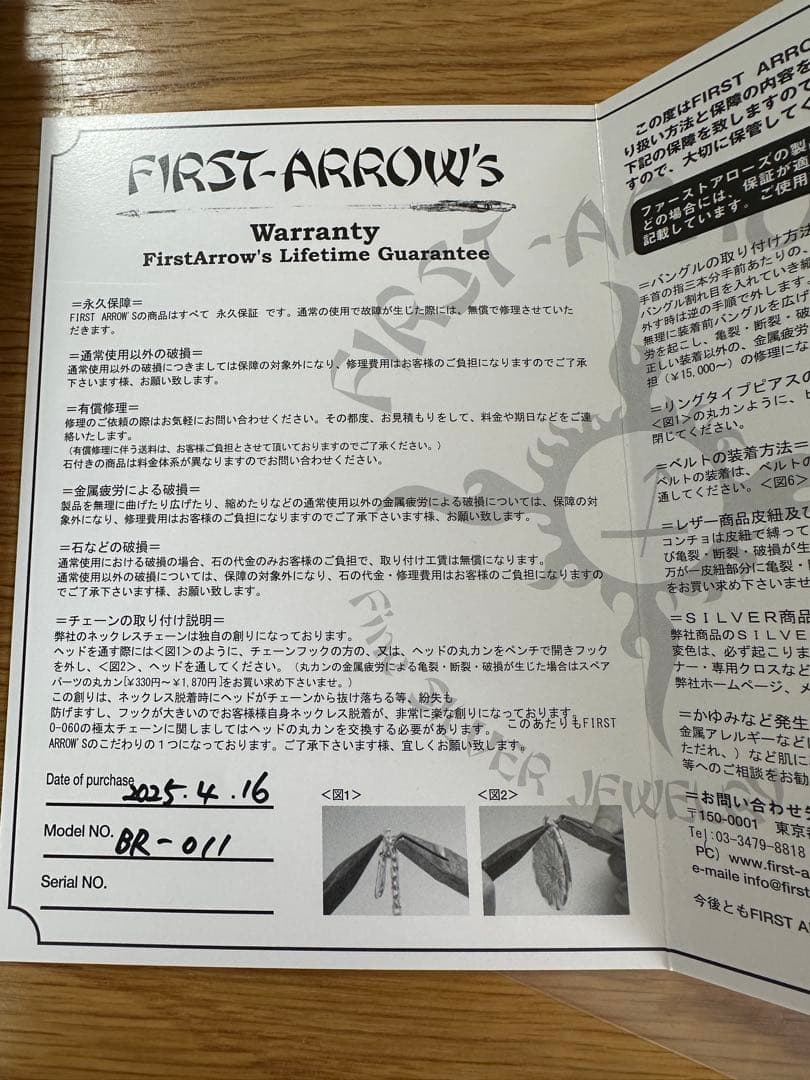 FIRST-ARROW's
Warranty
FirstArrow's Lifetime Guarantee
＝永久保障＝
FIRST ARROW'Sの商品はすべて 永久保証 です。通常の使用で故障が生じた際には、無償で修理させていた
だきます。
＝通常使用以外の破損＝
通常使用以外の破損につきましては保障の対象外になり、修理費用はお客様のご負担になりますのでご了承
下さいます様、お願い致します。
＝有償修理＝
修理のご依頼の際はお気軽にお問い合わせください。その都度、お見積もりをして、料金や期日などをご連
絡いたします。
（有償修理に伴う送料は、お客様ご負担とさせて頂いておりますのでご了承ください。）
石付きの商品は料金体系が異なりますのでお問い合わせください。
＝金属疲労による破損＝
製品を無理に曲げたり広げたり、縮めたりなどの通常使用以外の金属疲労による破損については、保障の対
象外になり、修理費用はお客様のご負担になりますのでご了承下さいます様、お願い致します。
＝石などの破損＝
通常使用における破損の場合、石の代金のみお客様のご負担で、取り付け工賃は無償になります。
通常使用以外の破損については、保障の対象外になり、石の代金・修理費用はお客様のご負担になりますの
でご了承下さいます様、お願い致します。
＝チェーンの取り付け説明＝
弊社のネックレスチェーンは独自の創りになっております。
ヘッドを通す際には＜図1＞のように、チェーンフックの方の、又は、ヘッドの丸カンをペンチで開きフック
を外し、＜図2＞、ヘッドを通してください。（丸カンの金属疲労による亀裂・断裂・破損が生じた場合はスペア
パーツの丸カン[¥330円〜¥1,870円]をお買い求め下さいませ。）
この創りは、ネックレス脱着時にヘッドがチェーンから抜け落ちる等、紛失も
防げますし、フックが大きいのでお客様様自身ネックレス脱着が、非常に楽な創りになっております。
O-060の極太チェーンに関しましてはヘッドの丸カンを交換する必要があります。 このあたりもFIRST
ARROW'Sのこだわりの１つになっております。ご了承下さいます様、宜しくお願い致します。
Date of purchase 2025.4.16
Model NO. BR-011
Serial NO.
＜図1＞ ＜図2＞
FIRST-ARRO
FINE SILVER JEWELRY
この度はFIRST ARRO
り扱い方法と保障の内容を
下記の保障を致しますので
すので、大切に保管してく
ファーストアローズの製品
どの場合には、保証が適
記載しています。ご使用
＝バングルの取り付け方法
手首の指三本分手前あたりの、
バングル割れ目を入れていき縦
外す時は逆の手順で外します。
無理に装着前バングルを広げ
労を起こし、亀裂・断裂・破
正しい装着以外の、金属疲労
担（¥15,000〜）の修理にな
＝リングタイプピアスの
＜図1＞の丸カンように、ピ
閉じてください。
＝ベルトの装着方法＝
ベルトの装着は、ベルトの
通してください。＜図6＞
＝レザー商品皮紐及び
コンチョは皮紐で縛って
び亀裂・断裂・破損が生
万が一皮紐部分に亀裂・
をお買い求め下さいませ
＝ＳＩＬＶＥＲ商品
弊社商品のＳＩＬＶＥＲ
変色は、必ず起こりま
ナー・専用クロスなど
弊社ホームページ、メ
＝かゆみなど発生
金属アレルギーなど
ただれ、）など肌に
等へのご相談をお勧
＝お問い合わせ先
〒150-0001 東京都
Tel:03-3479-8818
PC）www.first-a
e-maile info@first
今後ともFIRST A